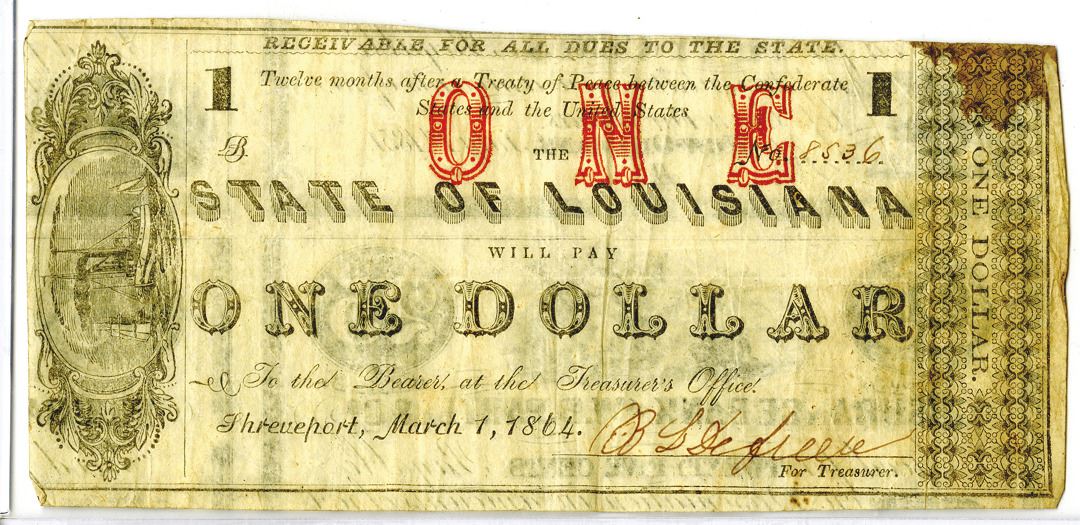 RECEIVABLE FOR ALL DUES TO THE STATE.
1 Twelve months after a Treaty of Peace between the Confederate 1
States and the United States
ONE
B. THE No. 8536
STATE OF LOUISIANA
WILL PAY
ONE DOLLAR
To the Bearer, at the Treasurer's Office.
Shreveport, March 1, 1864.
For Treasurer.
ONE DOLLAR.